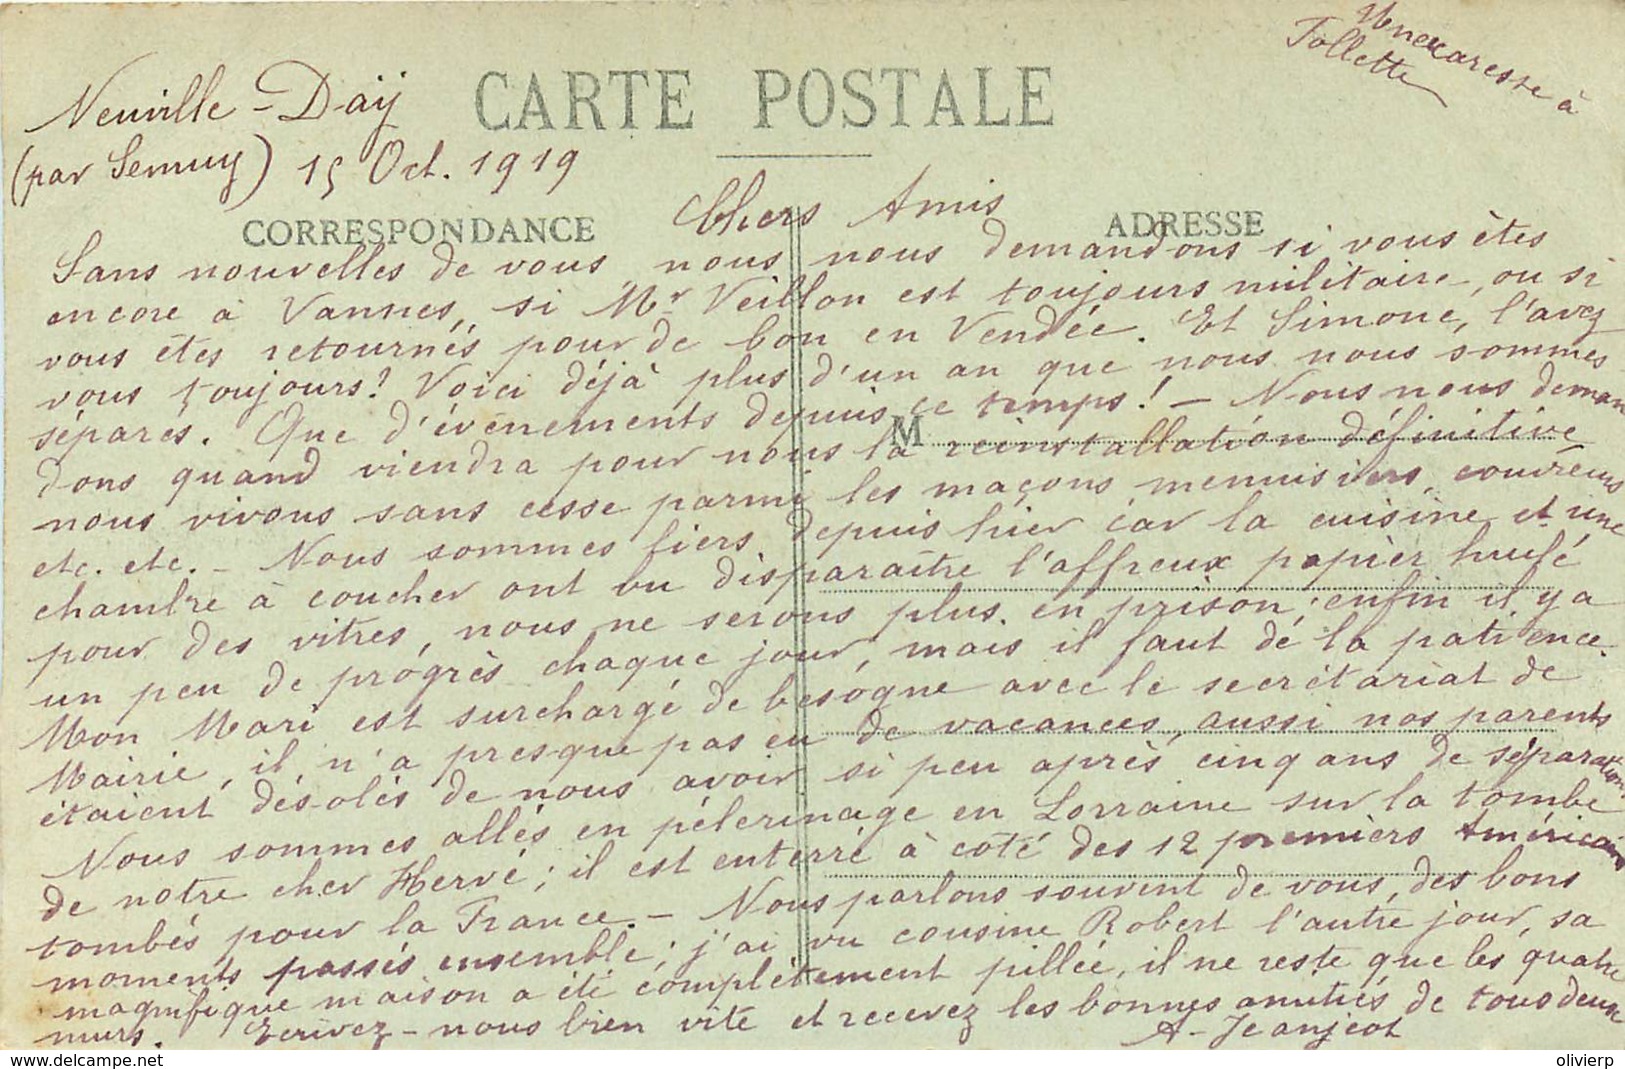 Une caresse à
Follette
Neuville-Daÿ
CARTE POSTALE
(par Semuy) 15 Oct. 1919
Chers Amis
CORRESPONDANCE
ADRESSE
Sans nouvelles de vous nous nous demandons si vous êtes
encore à Vannes, si Mr Veillon est toujours militaire, ou si
vous êtes retournés pour de bon en Vendée. Et Simone, l'avez
vous toujours? Voici déjà plus d'un an que nous nous sommes
séparés. Que d'événements depuis ce temps! — Nous nous deman
M
dons quand viendra pour nous la réinstallation définitive
nous vivons sans cesse parmi les maçons menuisiers, couvreurs
etc. etc. — Nous sommes fiers depuis hier car la cuisine et une
chambre à coucher ont vu disparaître l'affreux papier huilé
pour des vitres, nous ne serons plus en prison; enfin il y a
un peu de progrès chaque jour, mais il faut de la patience.
Mon Mari est surchargé de besogne avec le secrétariat de
Mairie, il n'a presque pas eu de vacances, aussi nos parents
étaient désolés de nous avoir si peu après cinq ans de séparation.
Nous sommes allés en pélerinage en Lorraine sur la tombe
de notre cher Hervé; il est enterré à côté des 12 premiers Américains
tombés pour la France. — Nous parlons souvent de vous, des bons
moments passés ensemble; j'ai vu cousine Robert l'autre jour, sa
magnifique maison a été complètement pillée, il ne reste que les quatre
murs. Ecrivez-nous bien vite et recevez les bonnes amitiés de tous deux
A. Jeanjeot
www.delcampe.net
olivierp